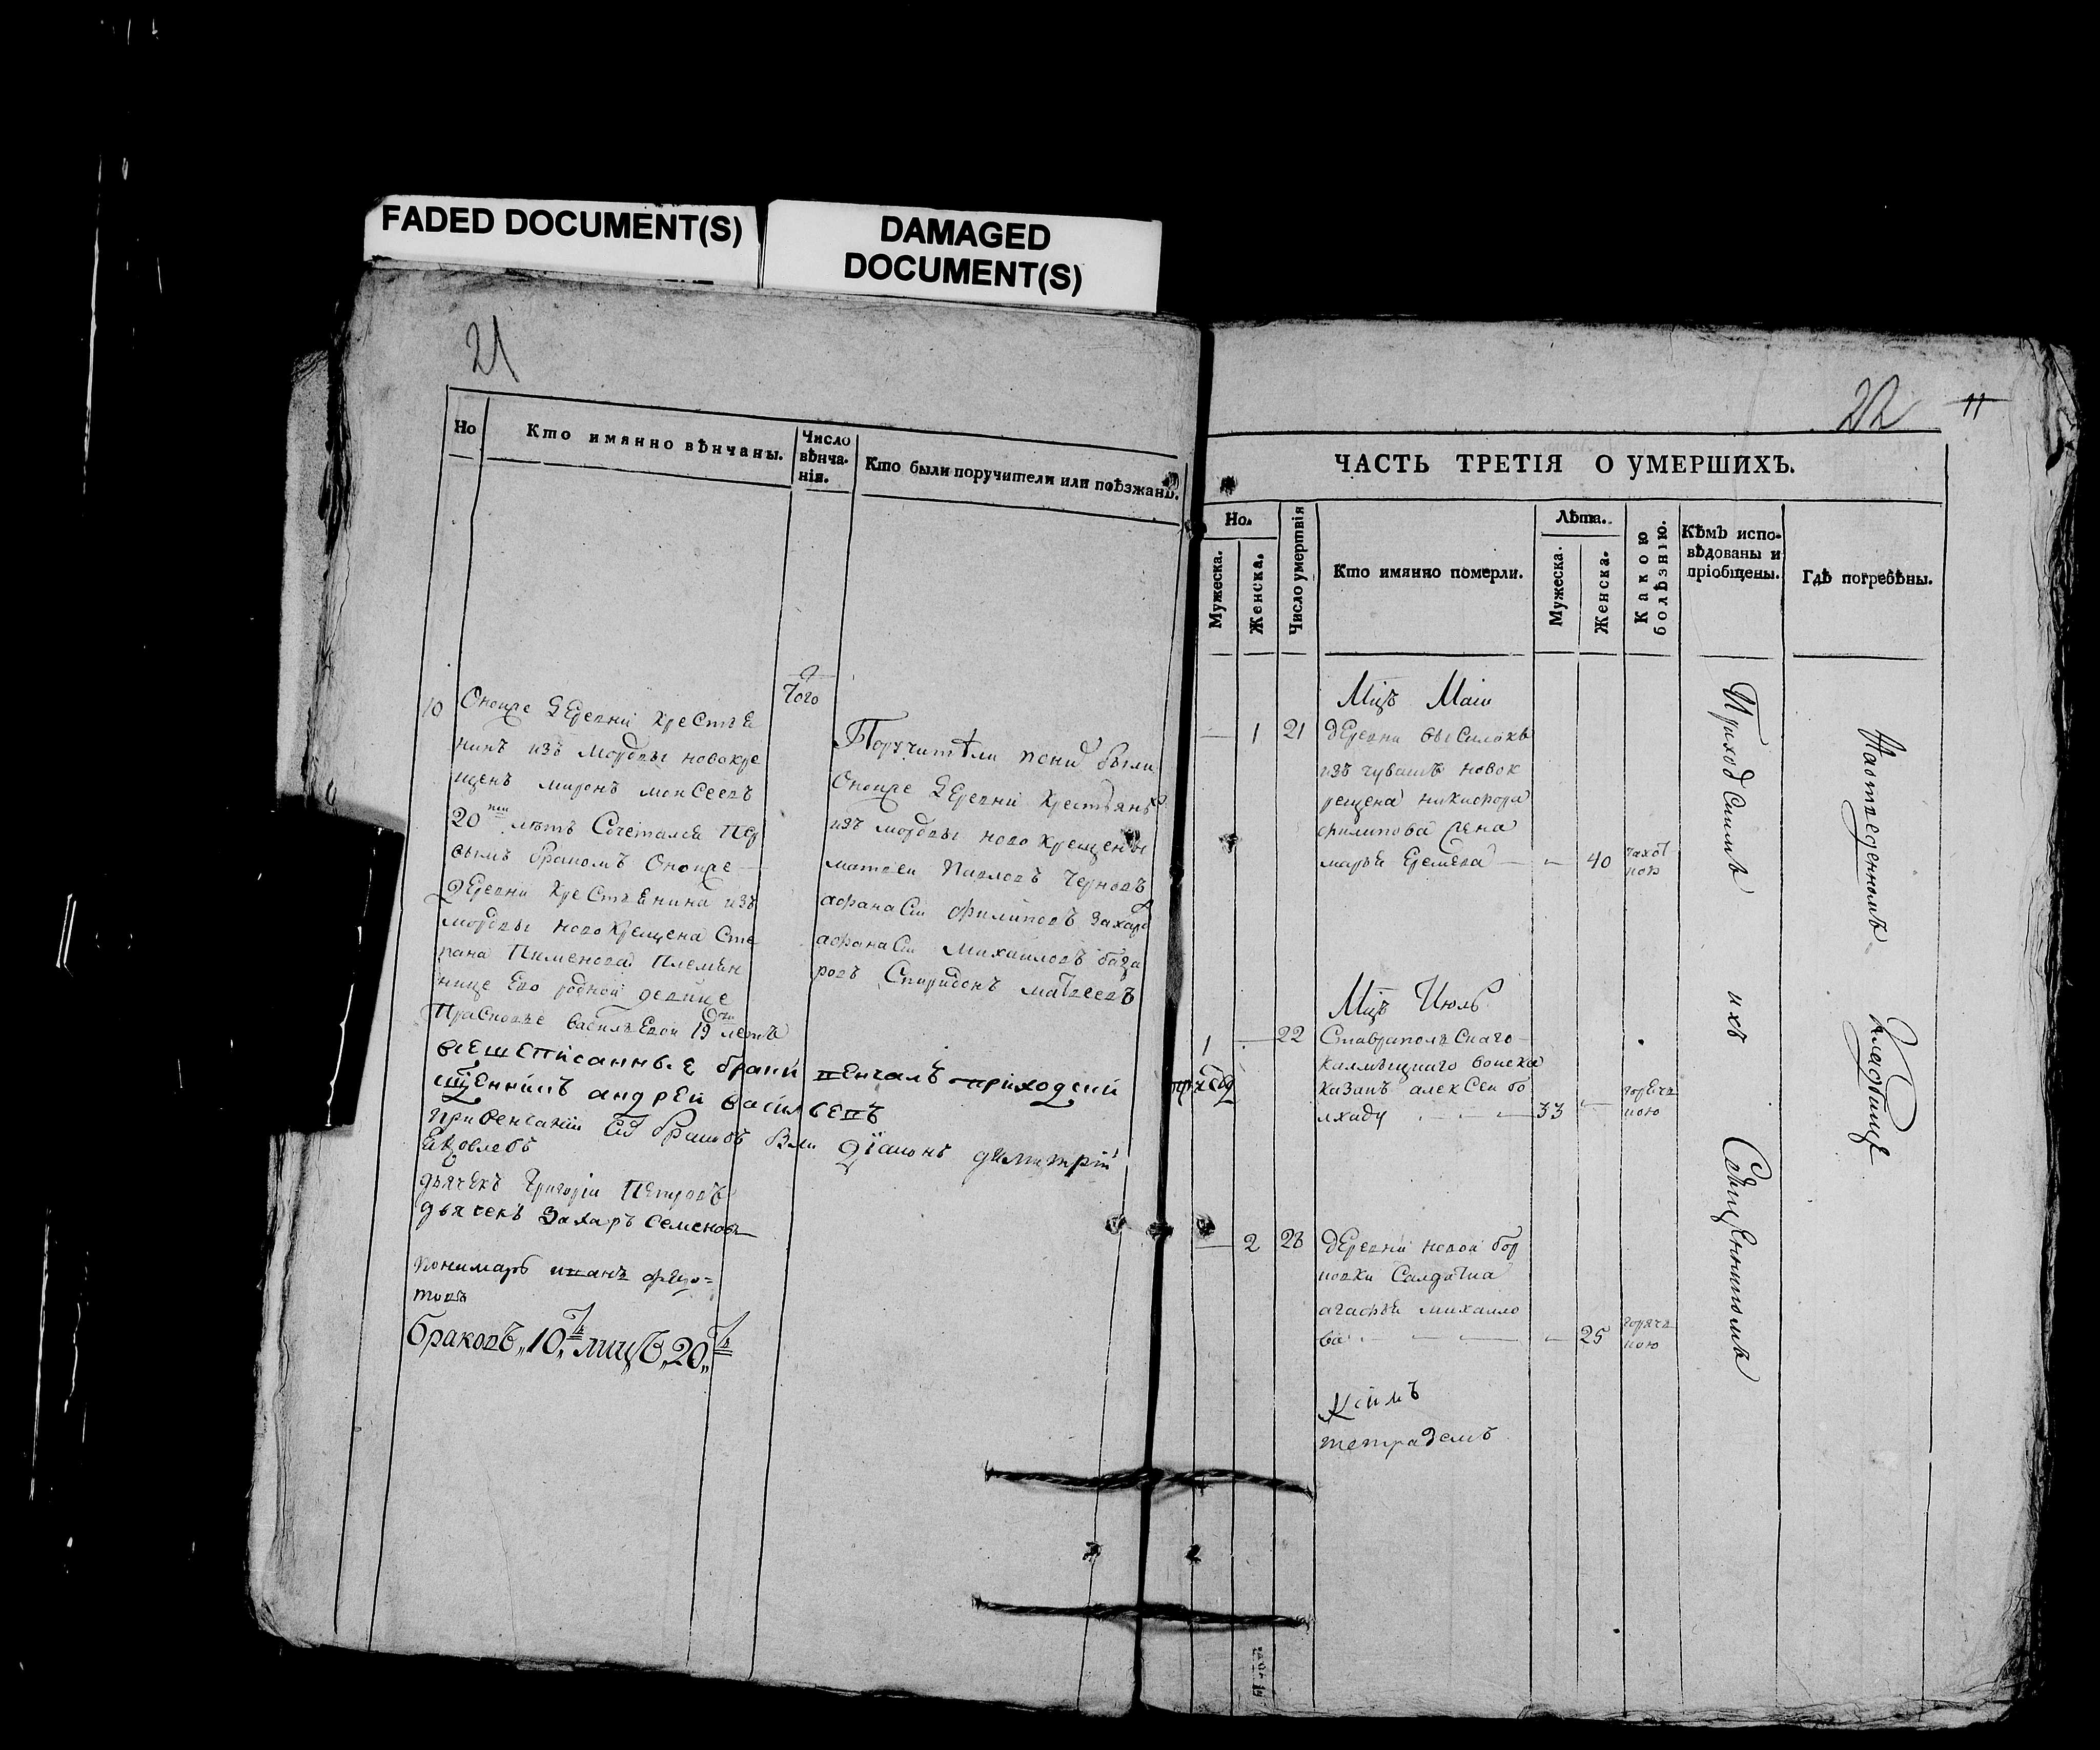 FADED DOCUMENT(S)
DAMAGED
DOCUMENT(S)
21
Но
Кто имянно вѣнчаны.
Число
вѣнча-
нія.
Кто были поручители или поѣзжанѣ.
10
Оноиже деревни крестъе
нинъ изъ мордвы новокре
щенъ миронъ моисеевъ
20 ти лѣтъ Сочетался пер
вымъ бракомъ Оноиже
деревни крестьенина изъ
мордвы новокрещена Сте
пана Пименова Племен
нице Ево родной девице
Прасковье васильевой 19 летъ
Того
Поручители поних были
Оноиже деревни крестьянѣ
изъ мордвы новокрещены
матвеи Павловъ Черновъ
афанасии филиповъ Захаро
афанасии михаиловъ база
ровъ Спиридонъ матвеевъ
вешеписанные браки венчалъ приходскии
щенникъ андреи василвевъ
при венчании Сихъ браковъ были дїаконъ димитріи
Яковлевъ
дьячекъ Григорїи Петровъ
дьячекъ Захаръ Семеновъ
пономарь иванъ федо=
товъ
браковъ „10„ лицъ „20„
22
11
ЧАСТЬ ТРЕТІЯ О УМЕРШИХЪ.
Но.
Мужеска.
Женска.
Число умертвія
Кто имянно померли.
Лѣта.
Мужеска.
Женска.
Какою
болѣзнію.
Кѣмъ испо-
вѣдованы и
пріобщены.
Гдѣ погребѣны.
Мцъ Маи
1 21 деревни выселокъ
изъ чувашъ новок
рещена никифора
филипова Жена
марья Еремева 40 чахот
ною
Мцъ Июль
1 22 Ставраполскаго
Калмыцкаго воиска
казакъ алексеи бо
лхаду 33 горяча
кою
2 28 деревни новой бор
ковки Салдатка
агафья михаило
ва 25 горяча
кою
Ксимъ
тетрадемъ
Приходскимъ ихъ Священникомъ
Наотведенномъ кладбище